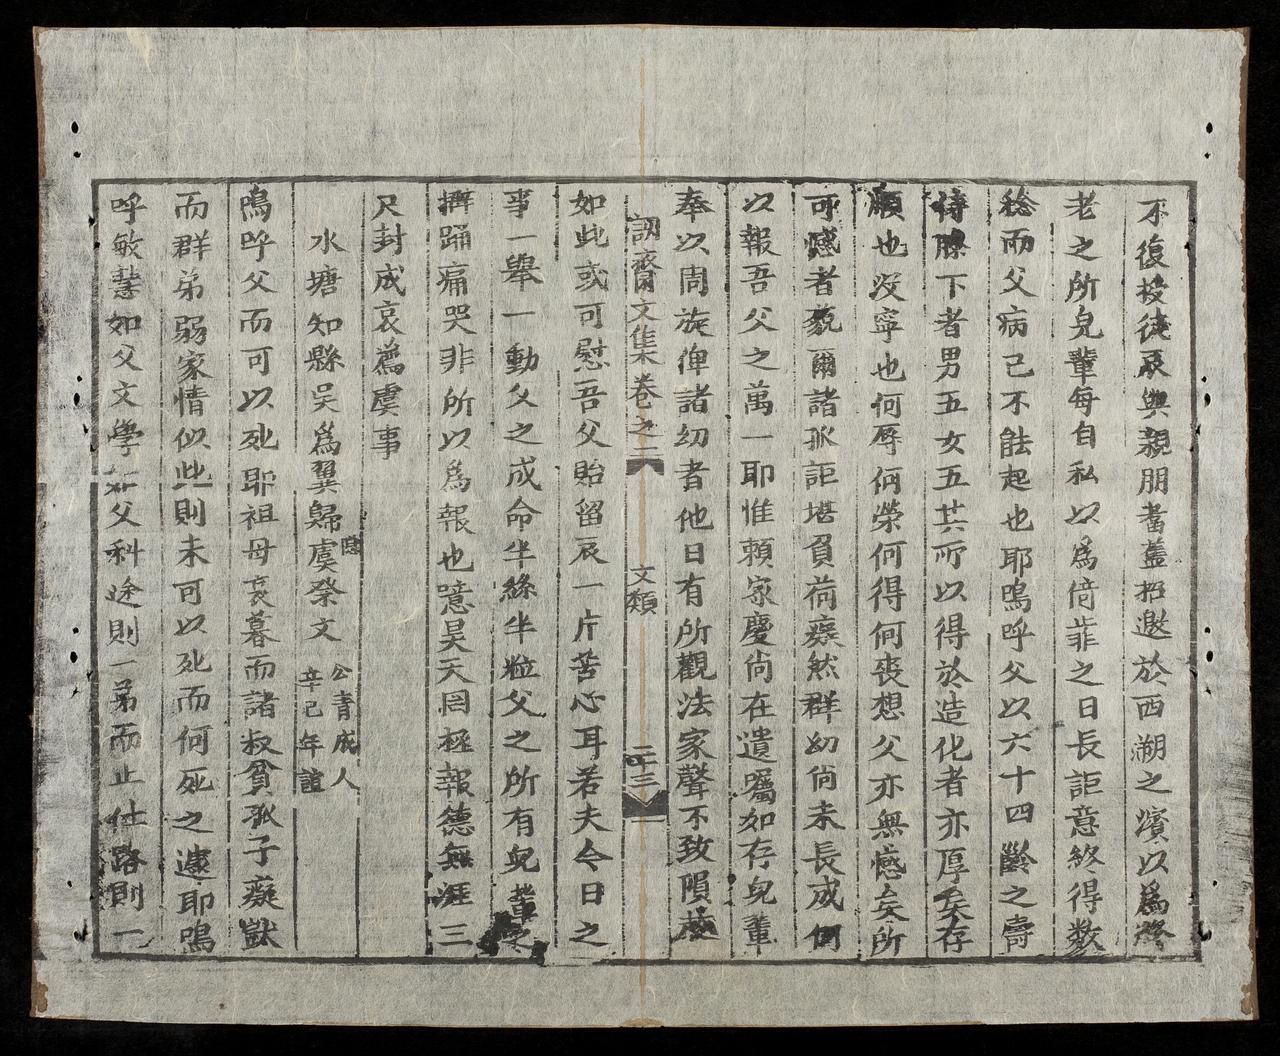 不復投徒辰與親朋耆蓋招邀於西湖之濱以爲終
老之所兒輩每自私以爲倚靠之日長詎意終得数
稔而父病已不能起也耶鳴呼父以六十四齡之壽
侍膝下者男五女五廿六所以得於造化者亦厚矣存
順也没寧也何辱何榮何得何喪想父亦無憾矣所
可憾者藐爾諸孤詎堪負荷瘝然群幼尚未長成何
以報吾父之萬一耶惟賴家慶尚在遺囑如存兒輩
奉以周旋俾諸幼者他日有所觀法家聲不致隕
訒齋文集卷之二 文類 二十三
如此或可慰吾父貽留一片苦心耳若夫今日之
事一舉一動父之成命半絲半粒父之所有兒輩之
擗踊痛哭非所以爲報也噫昊天罔極報德無涯三
尺封成哀薦虞事
水塘知縣吳爲翼歸虞祭文 公青威人 辛巳年
鳴呼父而可以死耶祖母衰暮而諸叔貧孤子癡獃
而群弟弱家情似此則未可以死而何死之遽耶鳴
呼敏慧如父文學如父科途則一弟而止仕路則一